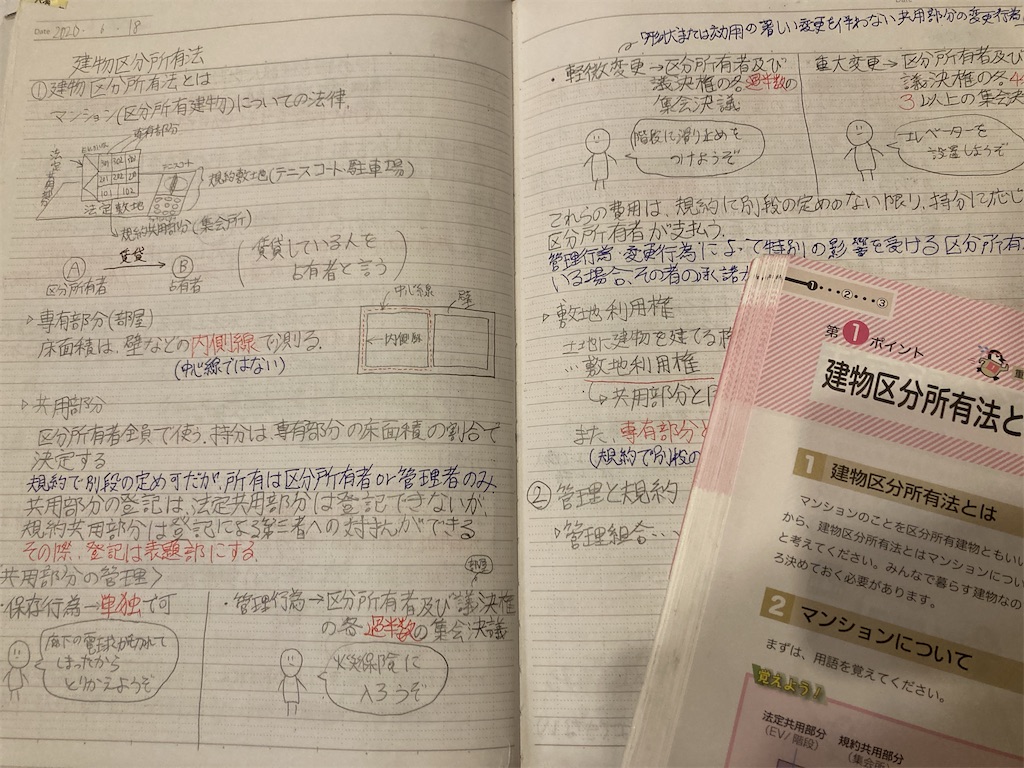 Date 2020. 6. 18
建物区分所有法
①建物区分所有法とは
マンション(区分所有建物)についての法律.
専有部分
法定共用部分
301 302 303
201 202 203
101 102
テニスコート
規約敷地(テニスコート・駐車場)
法定敷地
規約共用部分(集会所)
A 賃貸 B
区分所有者 占有者
(賃貸している人を
占有者と言う)
▹専有部分(部屋)
床面積は、壁などの内側線で測る.
(中心線ではない)
中心線 壁
←内側線
▹共用部分
区分所有者全員で使う. 持分は専有部分の床面積の割合で
決定する
規約で別段の定め可だが、所有は区分所有者or管理者のみ.
共用部分の登記は、法定共用部分は登記できないが、
規約共用部分は登記による第三者への対抗ができる
その際、登記は表題部にする.
共用部分の管理>
・保存行為→単独で可
廊下の電球が切れて
しまったから
とりかえようぞ
・管理行為→区分所有者及び議決権
の各過半数の集会決議
火災保険に
入ろうぞ
Date
形状または効用の著しい変更を伴わない共用部分の変更行為
・軽微変更→区分所有者及び
議決権の各過半数の
集会決議
階段に滑り止めを
つけようぞ
重大変更→区分所有者及び
議決権の各4
3以上の集会決
エレベーターを
設置しようぞ
これらの費用は、規約に別段の定めのない限り、持分に応じ
区分所有者が支払う.
管理行為・変更行為によって特別の影響を受ける区分所有
いる場合、その者の承諾が
▹敷地利用権
土地に建物を建てる
…敷地利用権
↳共用部分と同
また、専有部分と
(規約で別段の
②管理と規約
▹管理組合…
①…②…③
第1ポイント
建物区分所有法と
1 建物区分所有法とは
マンションのことを区分所有建物ともいい
から、建物区分所有法とはマンションについ
と考えてください。みんなで暮らす建物なの
ろ決めておく必要があります。
2 マンションについて
まずは、用語を覚えてください。
覚えよう!
法定共用部分
(EV/階段)
規約共用部分
(集会所)